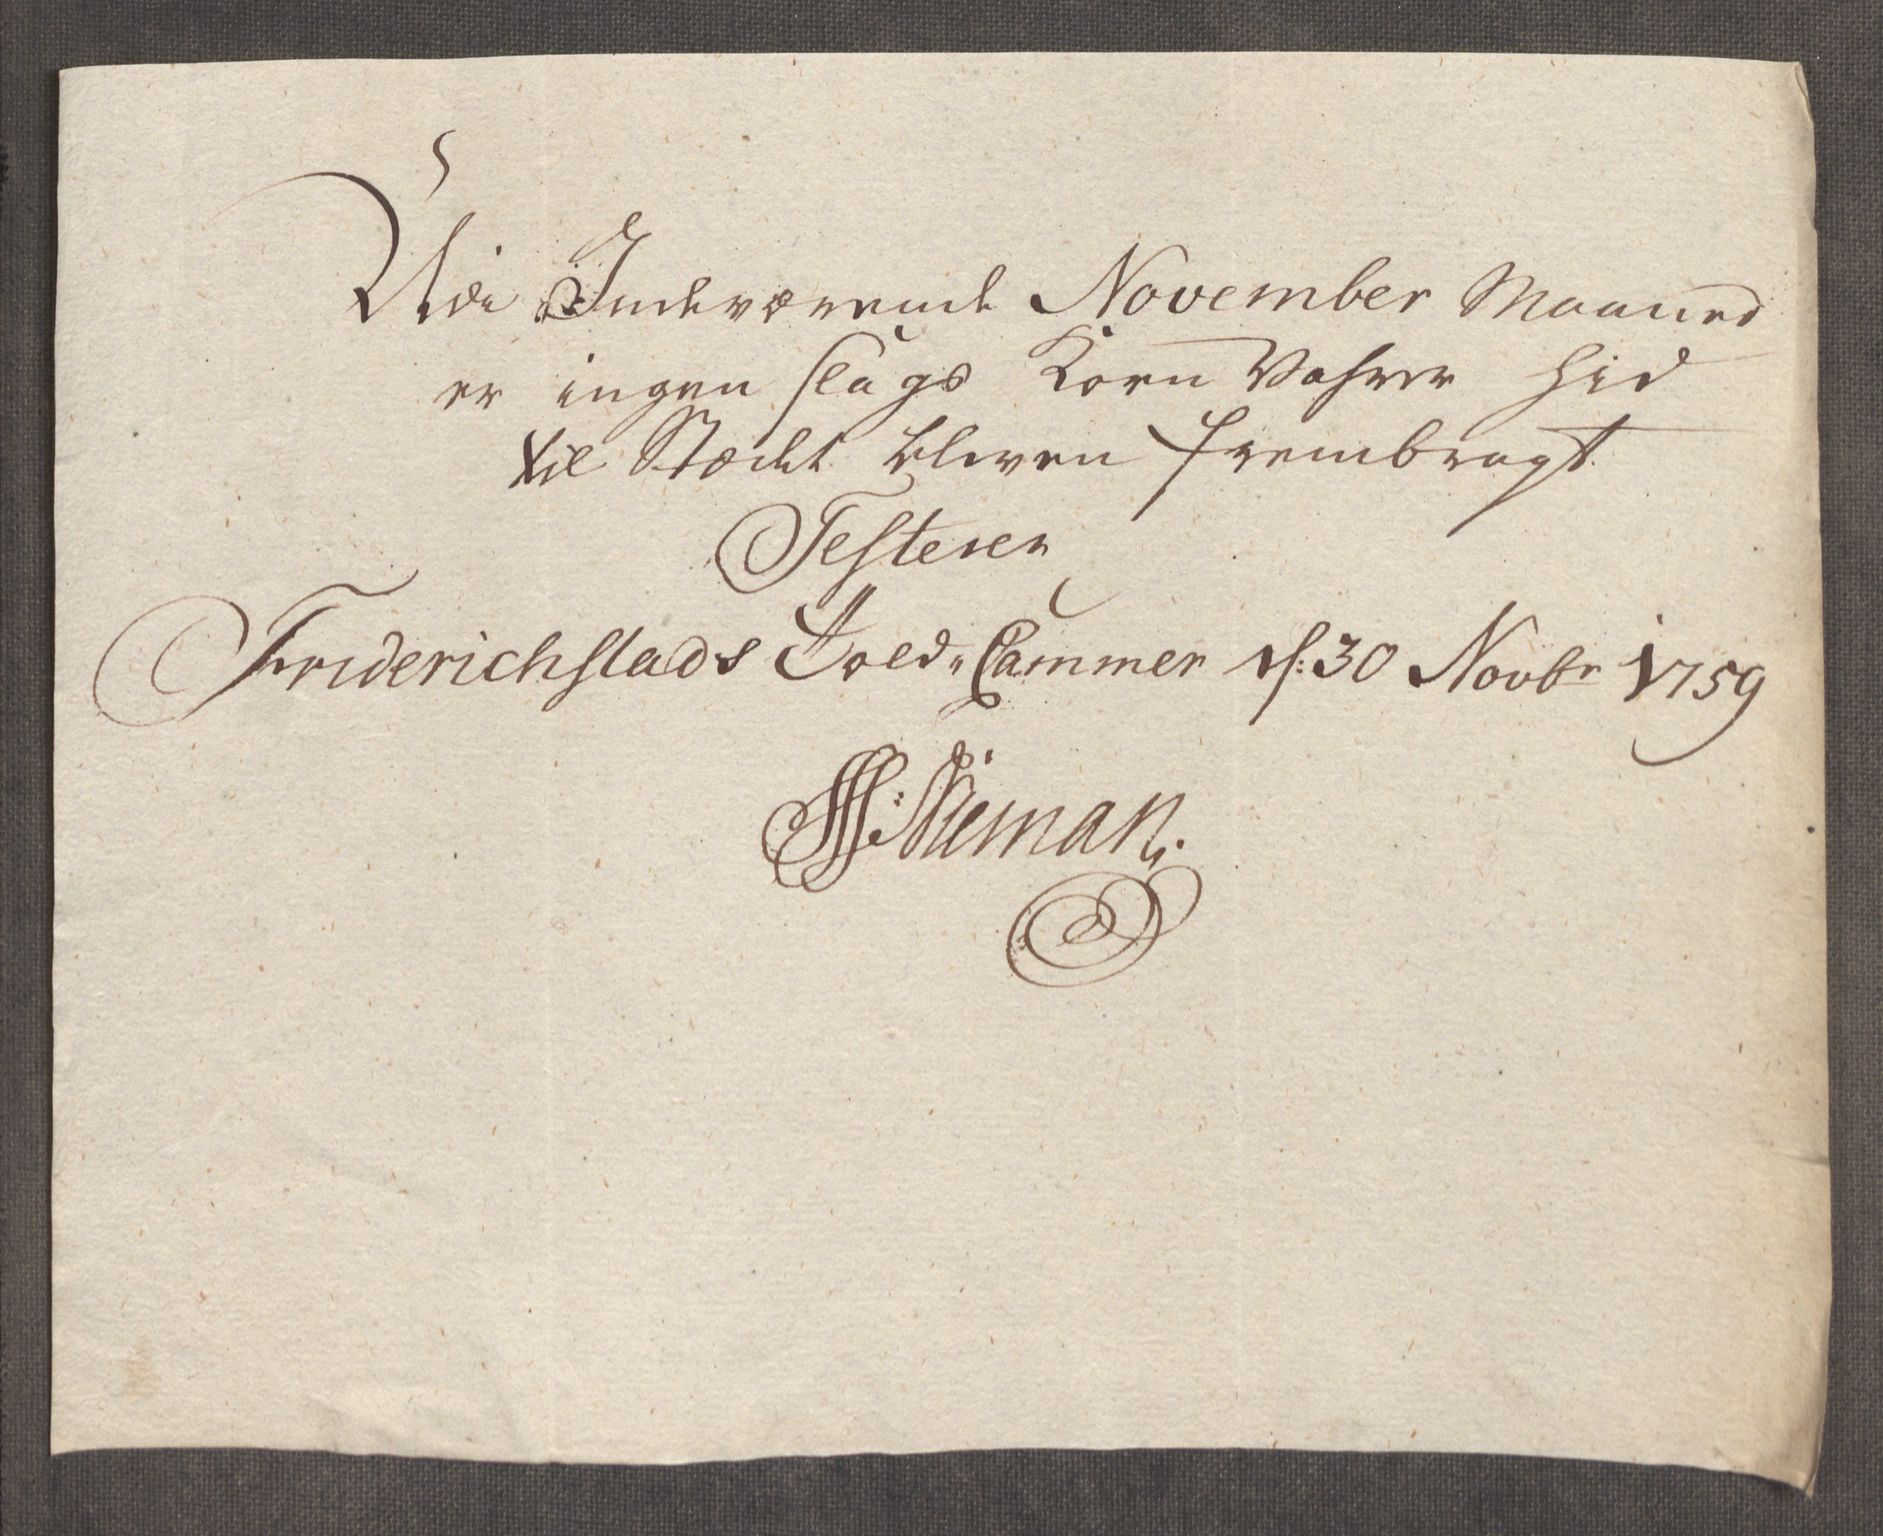 Udi Indeværende November Maaned
er ingen slags Korn Vahrer hid
til Stædet bleven frembragt
Testerer
Friderichstads Told-Cammer d: 30 Novbr 1759